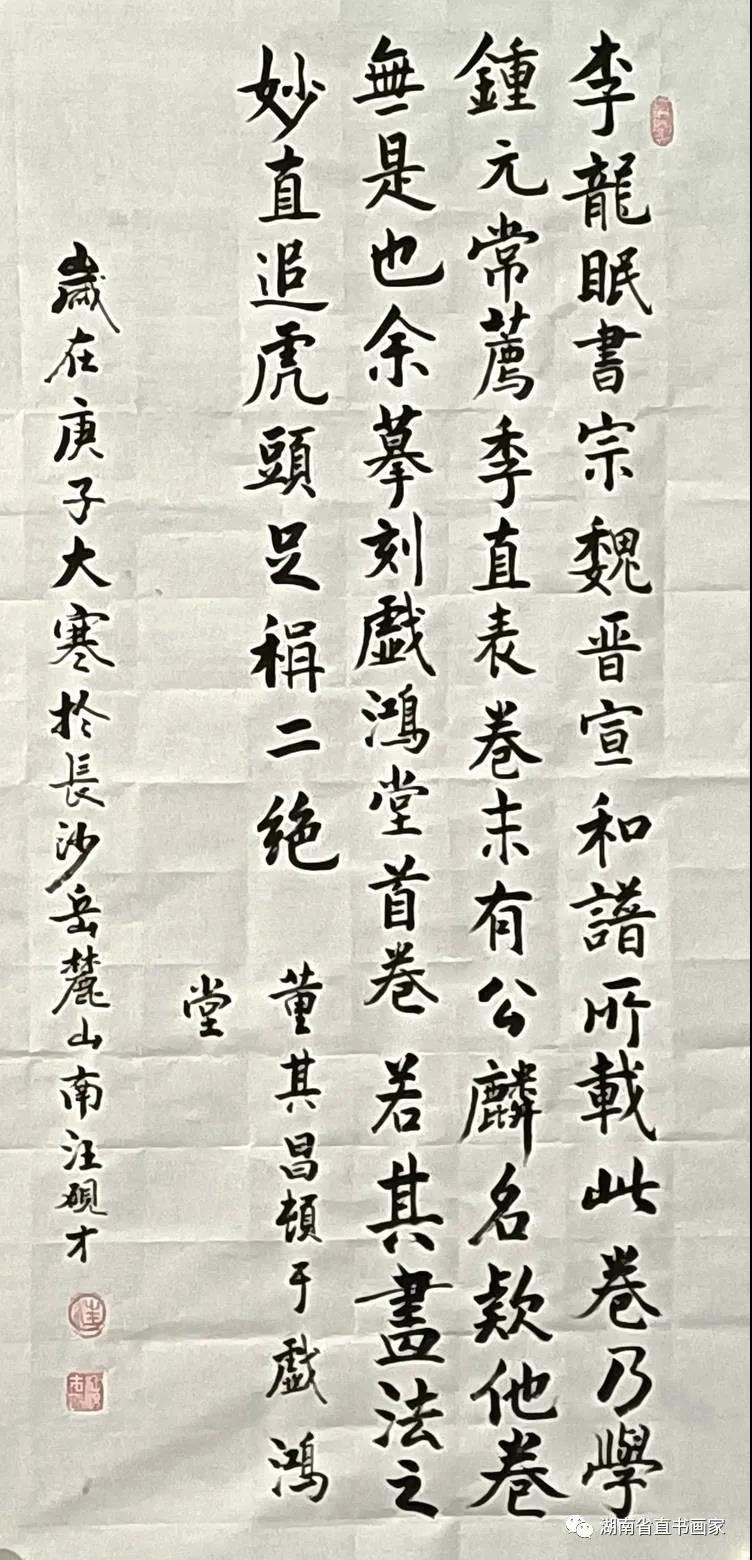 李龍眠書宗魏晋宣和譜所載此卷乃學
鍾元常薦季直表卷末有公麟名款他卷
無是也余摹刻戲鴻堂首卷若其畫法之
妙直追虎頭足稱二绝
董其昌頓于戯鴻
堂
歲在庚子大寒於長沙岳麓山南汪硯才
湖南省直书画家